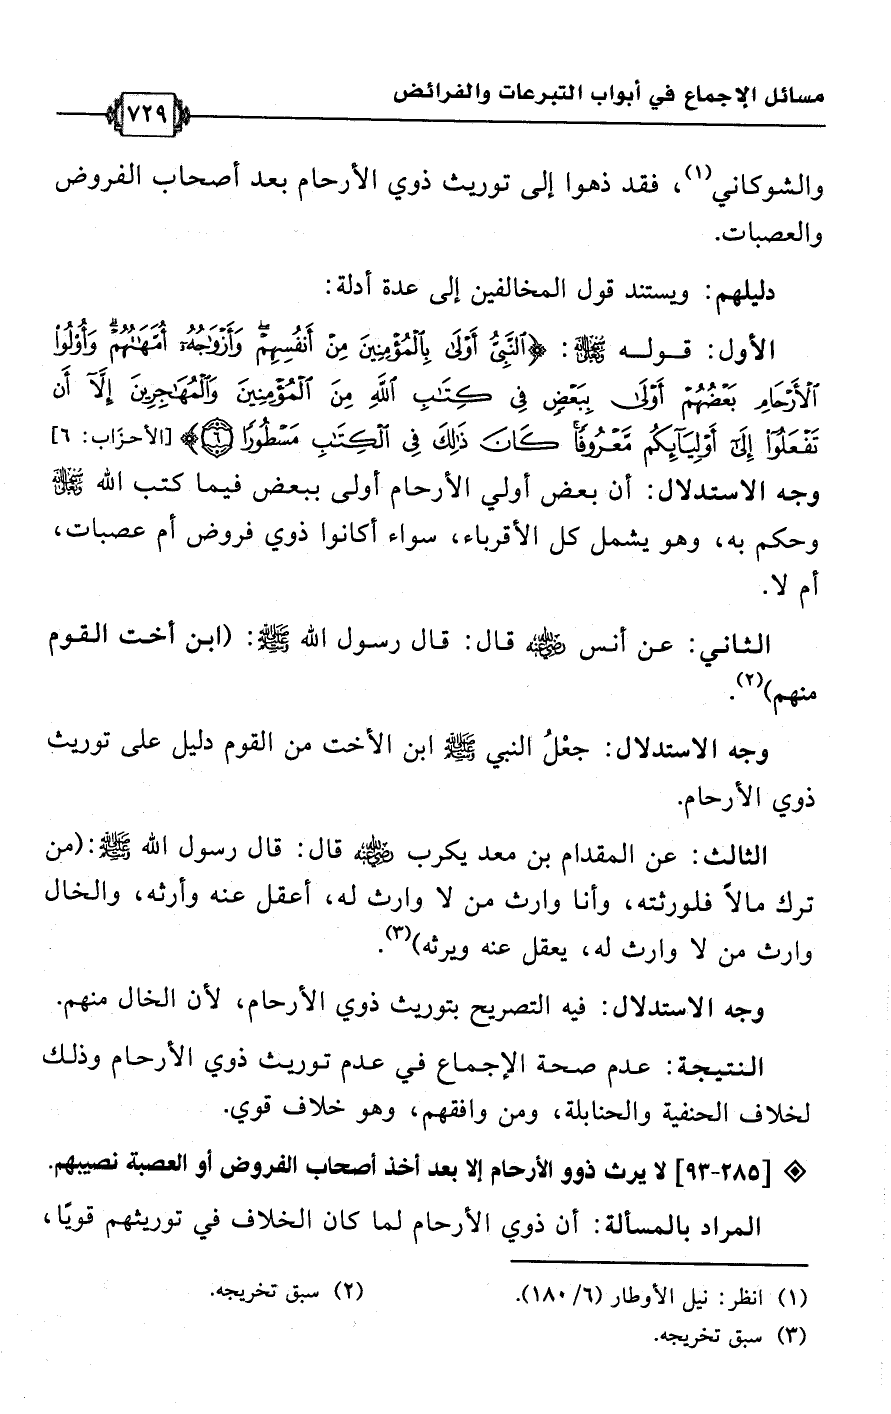 مسائل الإجماع في أبواب التبرعات والفرائض
٧٢٩
والشوكاني(١)، فقد ذهوا إلى توريث ذوي الأرحام بعد أصحاب الفروض
والعصبات.
دليلهم: ويستند قول المخالفين إلى عدة أدلة:
الأول: قوله ﷻ: ﴿ٱلنَّبِيُّ أَوْلَىٰ بِٱلْمُؤْمِنِينَ مِنْ أَنفُسِهِمْ ۖ وَأَزْوَٰجُهُۥٓ أُمَّهَٰتُهُمْ ۗ وَأُو۟لُوا۟
ٱلْأَرْحَامِ بَعْضُهُمْ أَوْلَىٰ بِبَعْضٍ فِى كِتَٰبِ ٱللَّهِ مِنَ ٱلْمُؤْمِنِينَ وَٱلْمُهَٰجِرِينَ إِلَّآ أَن
تَفْعَلُوٓا۟ إِلَىٰٓ أَوْلِيَآئِكُم مَّعْرُوفًا ۚ كَانَ ذَٰلِكَ فِى ٱلْكِتَٰبِ مَسْطُورًا ٦﴾ [الأحزَاب: ٦]
وجه الاستدلال: أن بعض أولي الأرحام أولى ببعض فيما كتب الله ﷻ
وحكم به، وهو يشمل كل الأقرباء، سواء أكانوا ذوي فروض أم عصبات،
أم لا.
الثاني: عن أنس رضي الله عنه قال: قال رسول الله ﷺ: (ابن أخت القوم
منهم)(٢).
وجه الاستدلال: جعْلُ النبي ﷺ ابن الأخت من القوم دليل على توريث
ذوي الأرحام.
الثالث: عن المقدام بن معد يكرب رضي الله عنه قال: قال رسول الله ﷺ:(من
ترك مالاً فلورثته، وأنا وارث من لا وارث له، أعقل عنه وأرثه، والخال
وارث من لا وارث له، يعقل عنه ويرثه)(٣).
وجه الاستدلال: فيه التصريح بتوريث ذوي الأرحام، لأن الخال منهم.
النتيجة: عدم صحة الإجماع في عدم توريث ذوي الأرحام وذلك
لخلاف الحنفية والحنابلة، ومن وافقهم، وهو خلاف قوي.
[٢٨٥-٩٣] لا يرث ذوو الأرحام إلا بعد أخذ أصحاب الفروض أو العصبة نصيبهم.
المراد بالمسألة: أن ذوي الأرحام لما كان الخلاف في توريثهم قويًا،
(١) انظر: نيل الأوطار (٦/ ١٨٠).
(٢) سبق تخريجه.
(٣) سبق تخريجه.